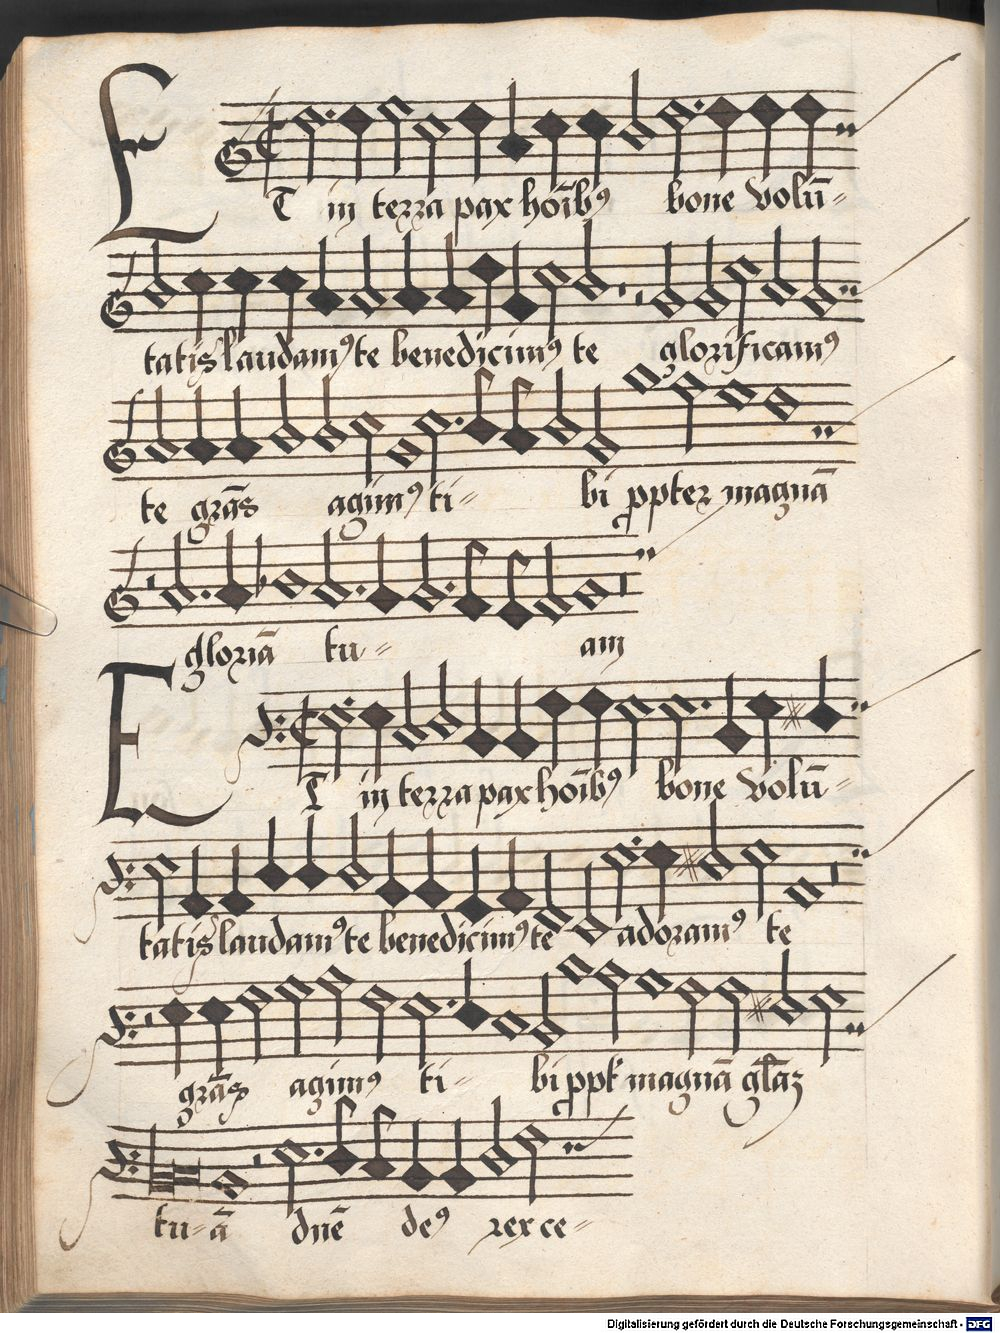 ET in terra pax hoībꝰ bone volū-
tatis laudamꝰ te benedicimꝰ te glorificamꝰ
te grās agimꝰ ti- bi ꝓpter magnā
gloriā tu- am
ET in terra pax hoībꝰ bone volū-
tatis laudamꝰ te benedicimꝰ te adoramꝰ te
grās agimꝰ ti- bi magnā
tu- ā dnē deꝰ rex ce-
Digitalisierung gefördert durch die Deutsche Forschungsgemeinschaft - DFG